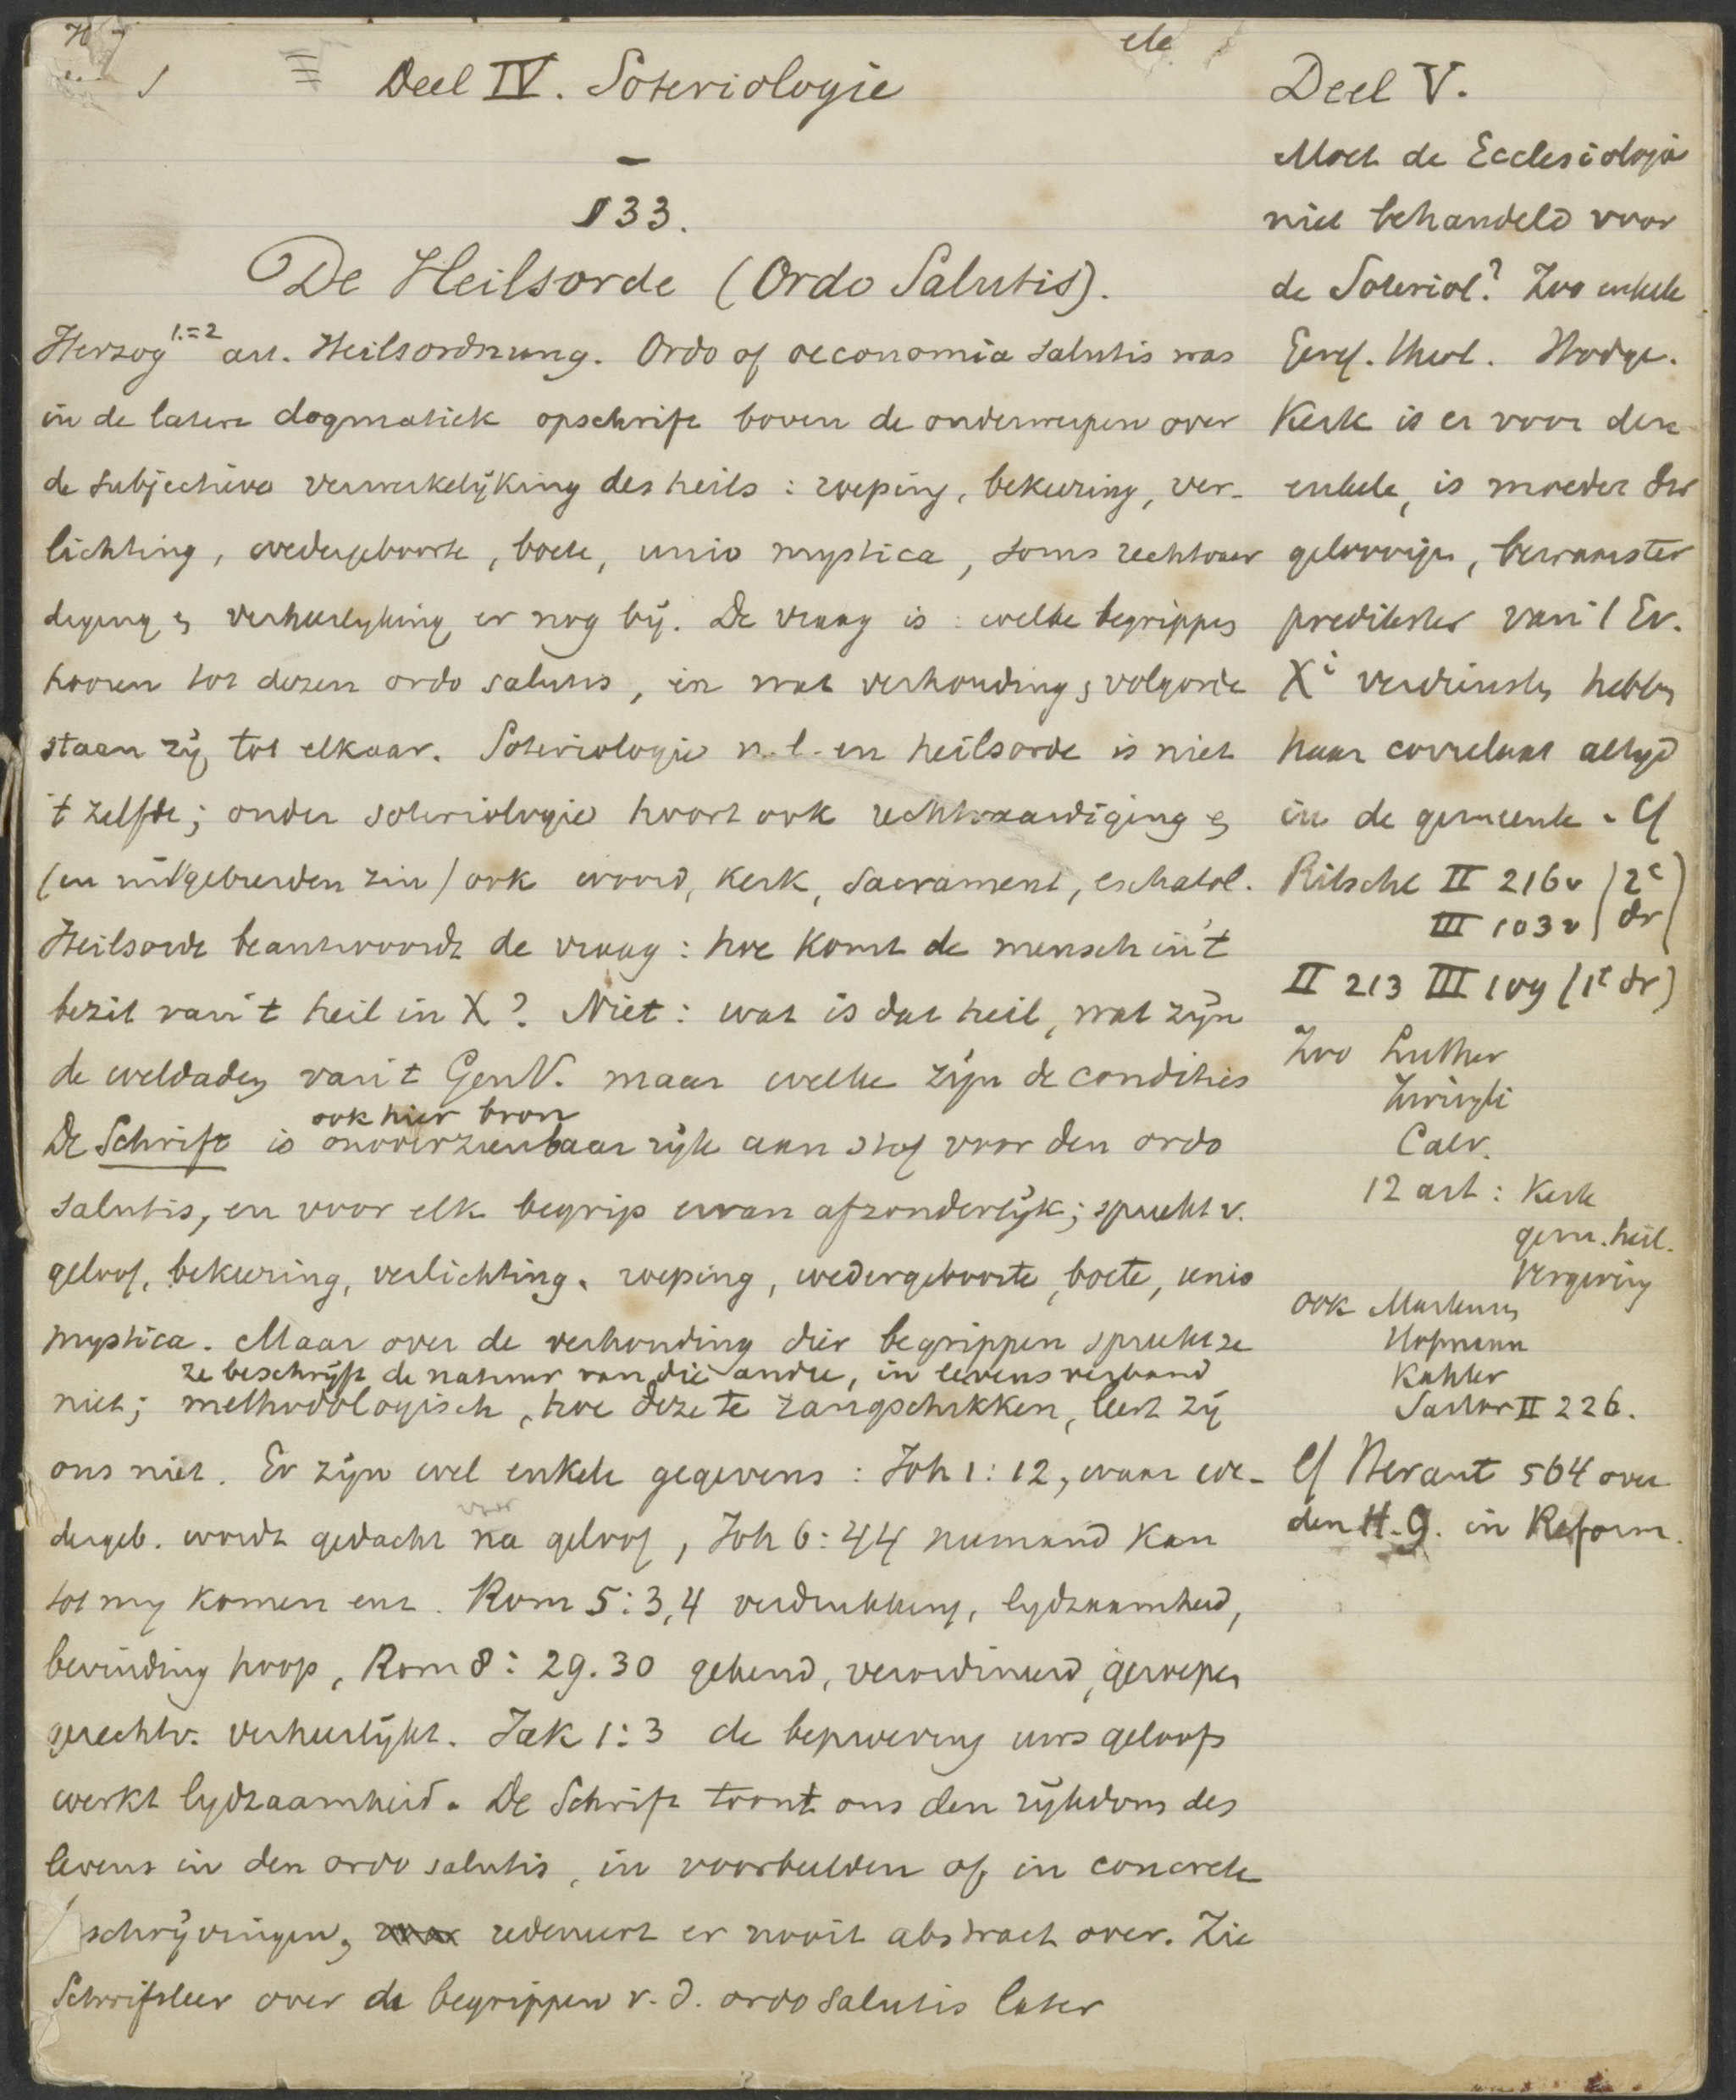 Deel IV. Soteriologie
§ 33.
De Heilsorde (Ordo Salutis).
Herzog 1.=2 art. Heilsordnung. Ordo of oeconomia salutis was
in de latere dogmatiek opschrift boven de onderwerpen over
de subjectieve verwerkelijking des heils : roeping, bekeering, ver-
lichting, wedergeboorte, boete, unio mystica, soms rechtvaar
diging en verheerlijking er nog bij. De vraag is : welke begrippen
hooren tot dezen ordo salutis, in wat verhouding en volgorde
staan zij tot elkaar. Soteriologie n.l. en heilsorde is niet
't zelfde; onder soteriologie hoort ook rechtvaardiging en
(in uitgebreiden zin) ook woord, kerk, sacrament, eschatol.
Heilsorde beantwoordt de vraag : hoe komt de mensch in 't
bezit van 't heil in X? Niet : wat is dat heil, wat zijn
de weldaden van 't GenV. maar welke zijn de condities
ook hier bron
De Schrift is onoverzienbaar rijk aan stof voor den ordo
salutis, en voor elk begrip ervan afzonderlijk; spreekt v.
geloof, bekeering, verlichting, roeping, wedergeboorte, boete, unio
mystica. Maar over de verhouding dier begrippen spreekt ze
ze beschrijft de natuur van die andre, in levensverband
niet; methodologisch, hoe deze te rangschikken, leert zij
ons niet. Er zijn wel enkele gegevens : Joh 1:12, waar we-
voor
dergeb. wordt gedacht na geloof, Joh 6:44 niemand kan
tot mij komen enz. Rom 5:3,4 verdrukking, lijdzaamheid,
bevinding hoop, Rom 8:29.30 gekend, verordineerd, geroepen
gerechtv. verheerlijkt. Jak 1:3 de beproeving uws geloofs
werkt lijdzaamheid. De Schrift toont ons den rijkdom des
levens in den ordo salutis, in voorbeelden of in concrete
schrijvingen, redeneert er nooit abstract over. Zie
Schriftleer over de begrippen v.d. ordo salutis later
Deel V.
Moet de Ecclesiologie
niet behandeld voor
de Soteriol? Zoo enkele
Geref. theol. Hodge.
Kerk is er voor den
enkele, is moeder der
geloovigen, bewaarster
predikster van 't Ev.
Xi verdiensten hebben
haar correlaat altijd
in de gemeente. Cf
Ritschl II 216v (2e
III 103v dr)
II 213 III 109 (1e dr)
Zoo Luther
Zwingli
Calv.
12 art : Kerk
gem. heil.
Vergeving
ook Martensen
Hofmann
Kähler
II 226.
Cf Heraut 564 over
den H.G. in Reform.